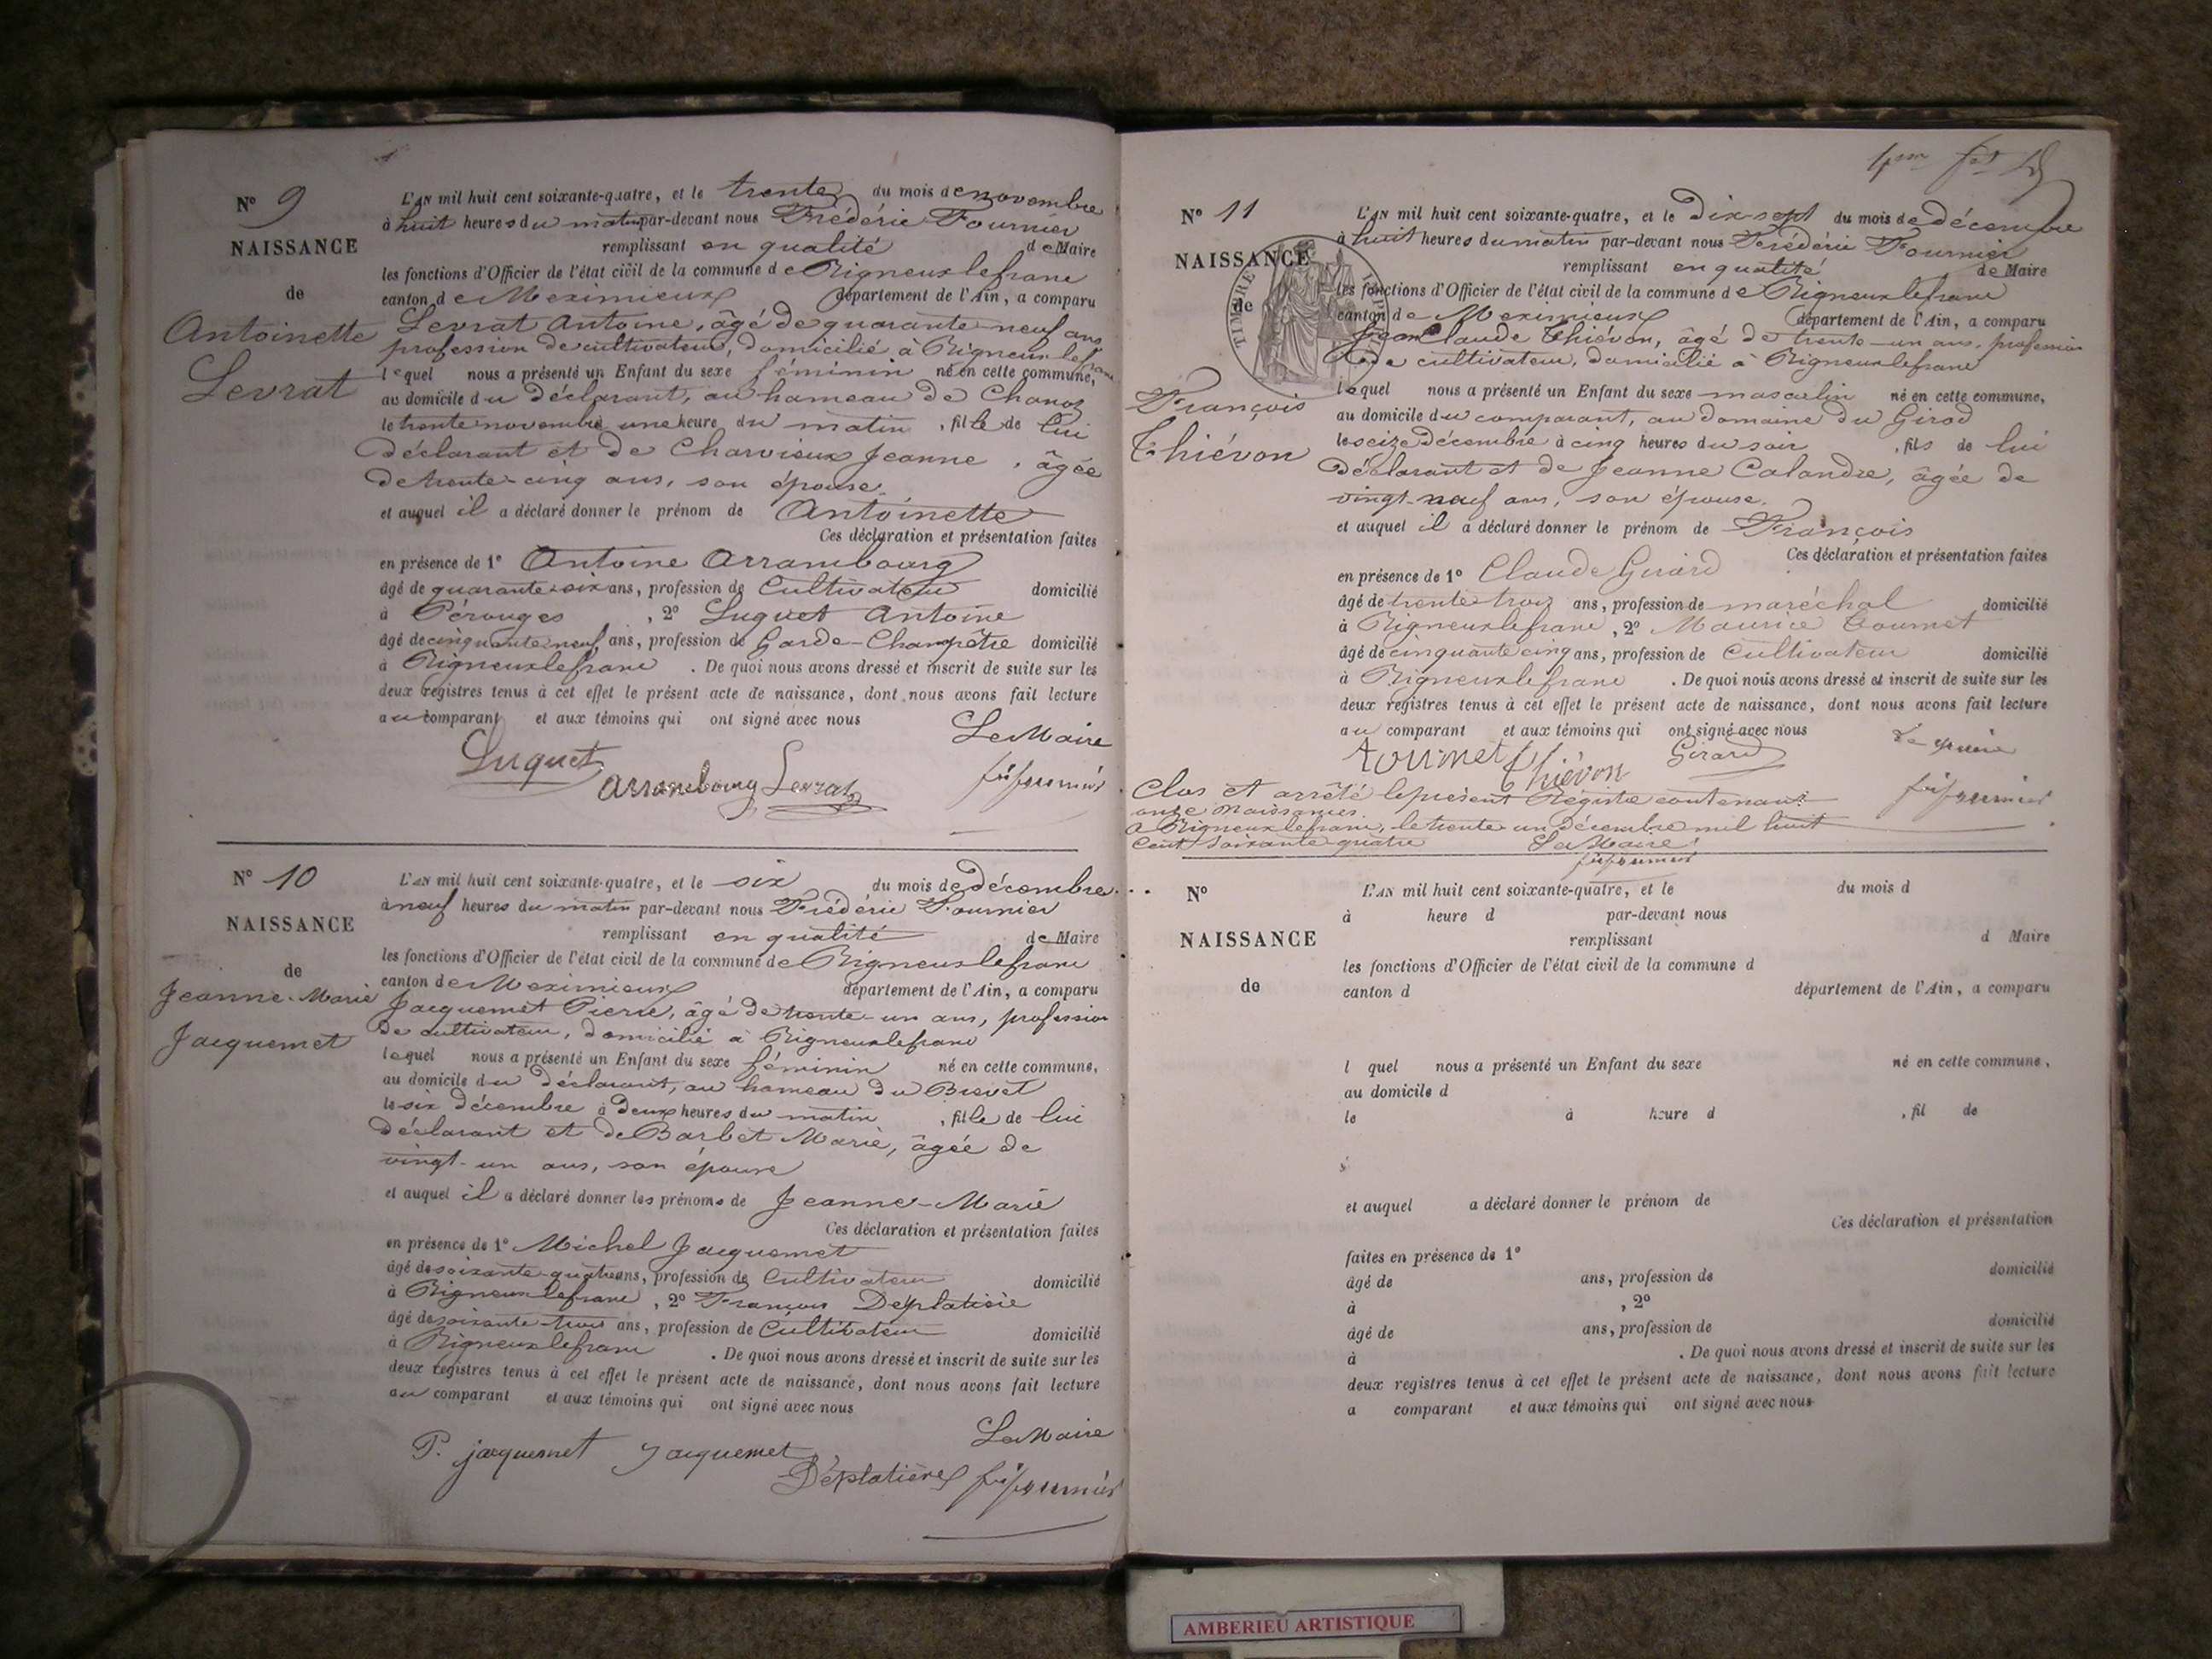 N° 9
NAISSANCE
de
Antoinette
Levrat
L'AN mil huit cent soixante-quatre, et le trente du mois de novembre
à huit heures du matin par-devant nous Frédéric Fournier
remplissant en qualité de Maire
les fonctions d'Officier de l'état civil de la commune de Rigneux le franc
canton de Meximieux département de l'Ain, a comparu
Levrat Antoine, âgé de quarante-neuf ans
profession de cultivateur, domicilié à Rigneux le franc
lequel nous a présenté un Enfant du sexe féminin né en cette commune,
au domicile du déclarant, au hameau de Chanoz
le trente novembre une heure du matin, fille de lui
déclarant et de Charvieux Jeanne, âgée
de trente-cinq ans, son épouse.
et auquel il a déclaré donner le prénom de Antoinette
Ces déclaration et présentation faites
en présence de 1° Antoine Arrambourg
âgé de quarante-six ans, profession de Cultivateur domicilié
à Pérouges, 2° Luquet Antoine
âgé de cinquante neuf ans, profession de Garde-Champêtre domicilié
à Rigneux le franc. De quoi nous avons dressé et inscrit de suite sur les
deux registres tenus à cet effet le présent acte de naissance, dont nous avons fait lecture
au comparant et aux témoins qui ont signé avec nous
Le Maire
Luquet Arrambourg Levrat fri fournier
N° 10
NAISSANCE
de
Jeanne-Marie
Jacquemet
L'AN mil huit cent soixante-quatre, et le six du mois de décembre
à neuf heures du matin par-devant nous Frédéric Fournier
remplissant en qualité de Maire
les fonctions d'Officier de l'état civil de la commune de Rigneux le franc
canton de Meximieux département de l'Ain, a comparu
Jacquemet Pierre, âgé de trente-un ans, profession
de cultivateur, domicilié à Rigneux le franc
lequel nous a présenté un Enfant du sexe féminin né en cette commune,
au domicile du déclarant, au hameau du Brevet
le six décembre à deux heures du matin, fille de lui
déclarant et de Barbet Marie, âgée de
vingt-un ans, son épouse
et auquel il a déclaré donner les prénoms de Jeanne-Marie
Ces déclaration et présentation faites
en présence de 1° Michel Jacquemet
âgé de soixante-quatre ans, profession de Cultivateur domicilié
à Rigneux le franc, 2° François Déplatière
âgé de soixante-trois ans, profession de Cultivateur domicilié
à Rigneux le franc. De quoi nous avons dressé et inscrit de suite sur les
deux registres tenus à cet effet le présent acte de naissance, dont nous avons fait lecture
au comparant et aux témoins qui ont signé avec nous
Le Maire
P. jacquemet Jacquemet Déplatière fri fournier
N° 11
NAISSANCE
de
TIMRE
François
Thiévon
L'AN mil huit cent soixante-quatre, et le Dix-sept du mois de décembre
à huit heures du matin par-devant nous Frédéric Fournier
remplissant en qualité de Maire
les fonctions d'Officier de l'état civil de la commune de Rigneux le franc
canton de Meximieux département de l'Ain, a comparu
Jean Claude Thiévon, âgé de trente-un ans, profession
de cultivateur, domicilié à Rigneux le franc
lequel nous a présenté un Enfant du sexe masculin né en cette commune,
au domicile du comparant, au domaine du Girod
le seize décembre à cinq heures du soir, fils de lui
déclarant et de Jeanne Calandre, âgée de
vingt-neuf ans, son épouse.
et auquel il a déclaré donner le prénom de François
Ces déclaration et présentation faites
en présence de 1° Claude Girard
âgé de trente trois ans, profession de maréchal domicilié
à Rigneux le franc, 2° Maurice Tournet
âgé de cinquante cinq ans, profession de Cultivateur domicilié
à Rigneux le franc. De quoi nous avons dressé et inscrit de suite sur les
deux registres tenus à cet effet le présent acte de naissance, dont nous avons fait lecture
au comparant et aux témoins qui ont signé avec nous
Le maire
tournet Thiévon Girard fri fournier
Clos et arrêté le présent Régistre contenant
onze naissances.
a Rigneux le franc, le trente-un Décembre mil huit
cent soixante quatre Le Maire
fri fournier
N°
NAISSANCE
de
L'AN mil huit cent soixante-quatre, et le du mois d
à heure d par-devant nous
remplissant d Maire
les fonctions d'Officier de l'état civil de la commune d
canton d département de l'Ain, a comparu
l quel nous a présenté un Enfant du sexe né en cette commune,
au domicile d
le à heure d , fil de
et auquel a déclaré donner le prénom de
Ces déclaration et présentation
faites en présence de 1°
âgé de ans, profession de domicilié
à , 2°
âgé de ans, profession de domicilié
à . De quoi nous avons dressé et inscrit de suite sur les
deux registres tenus à cet effet le présent acte de naissance, dont nous avons fait lecture
a comparant et aux témoins qui ont signé avec nous
AMBERIEU ARTISTIQUE